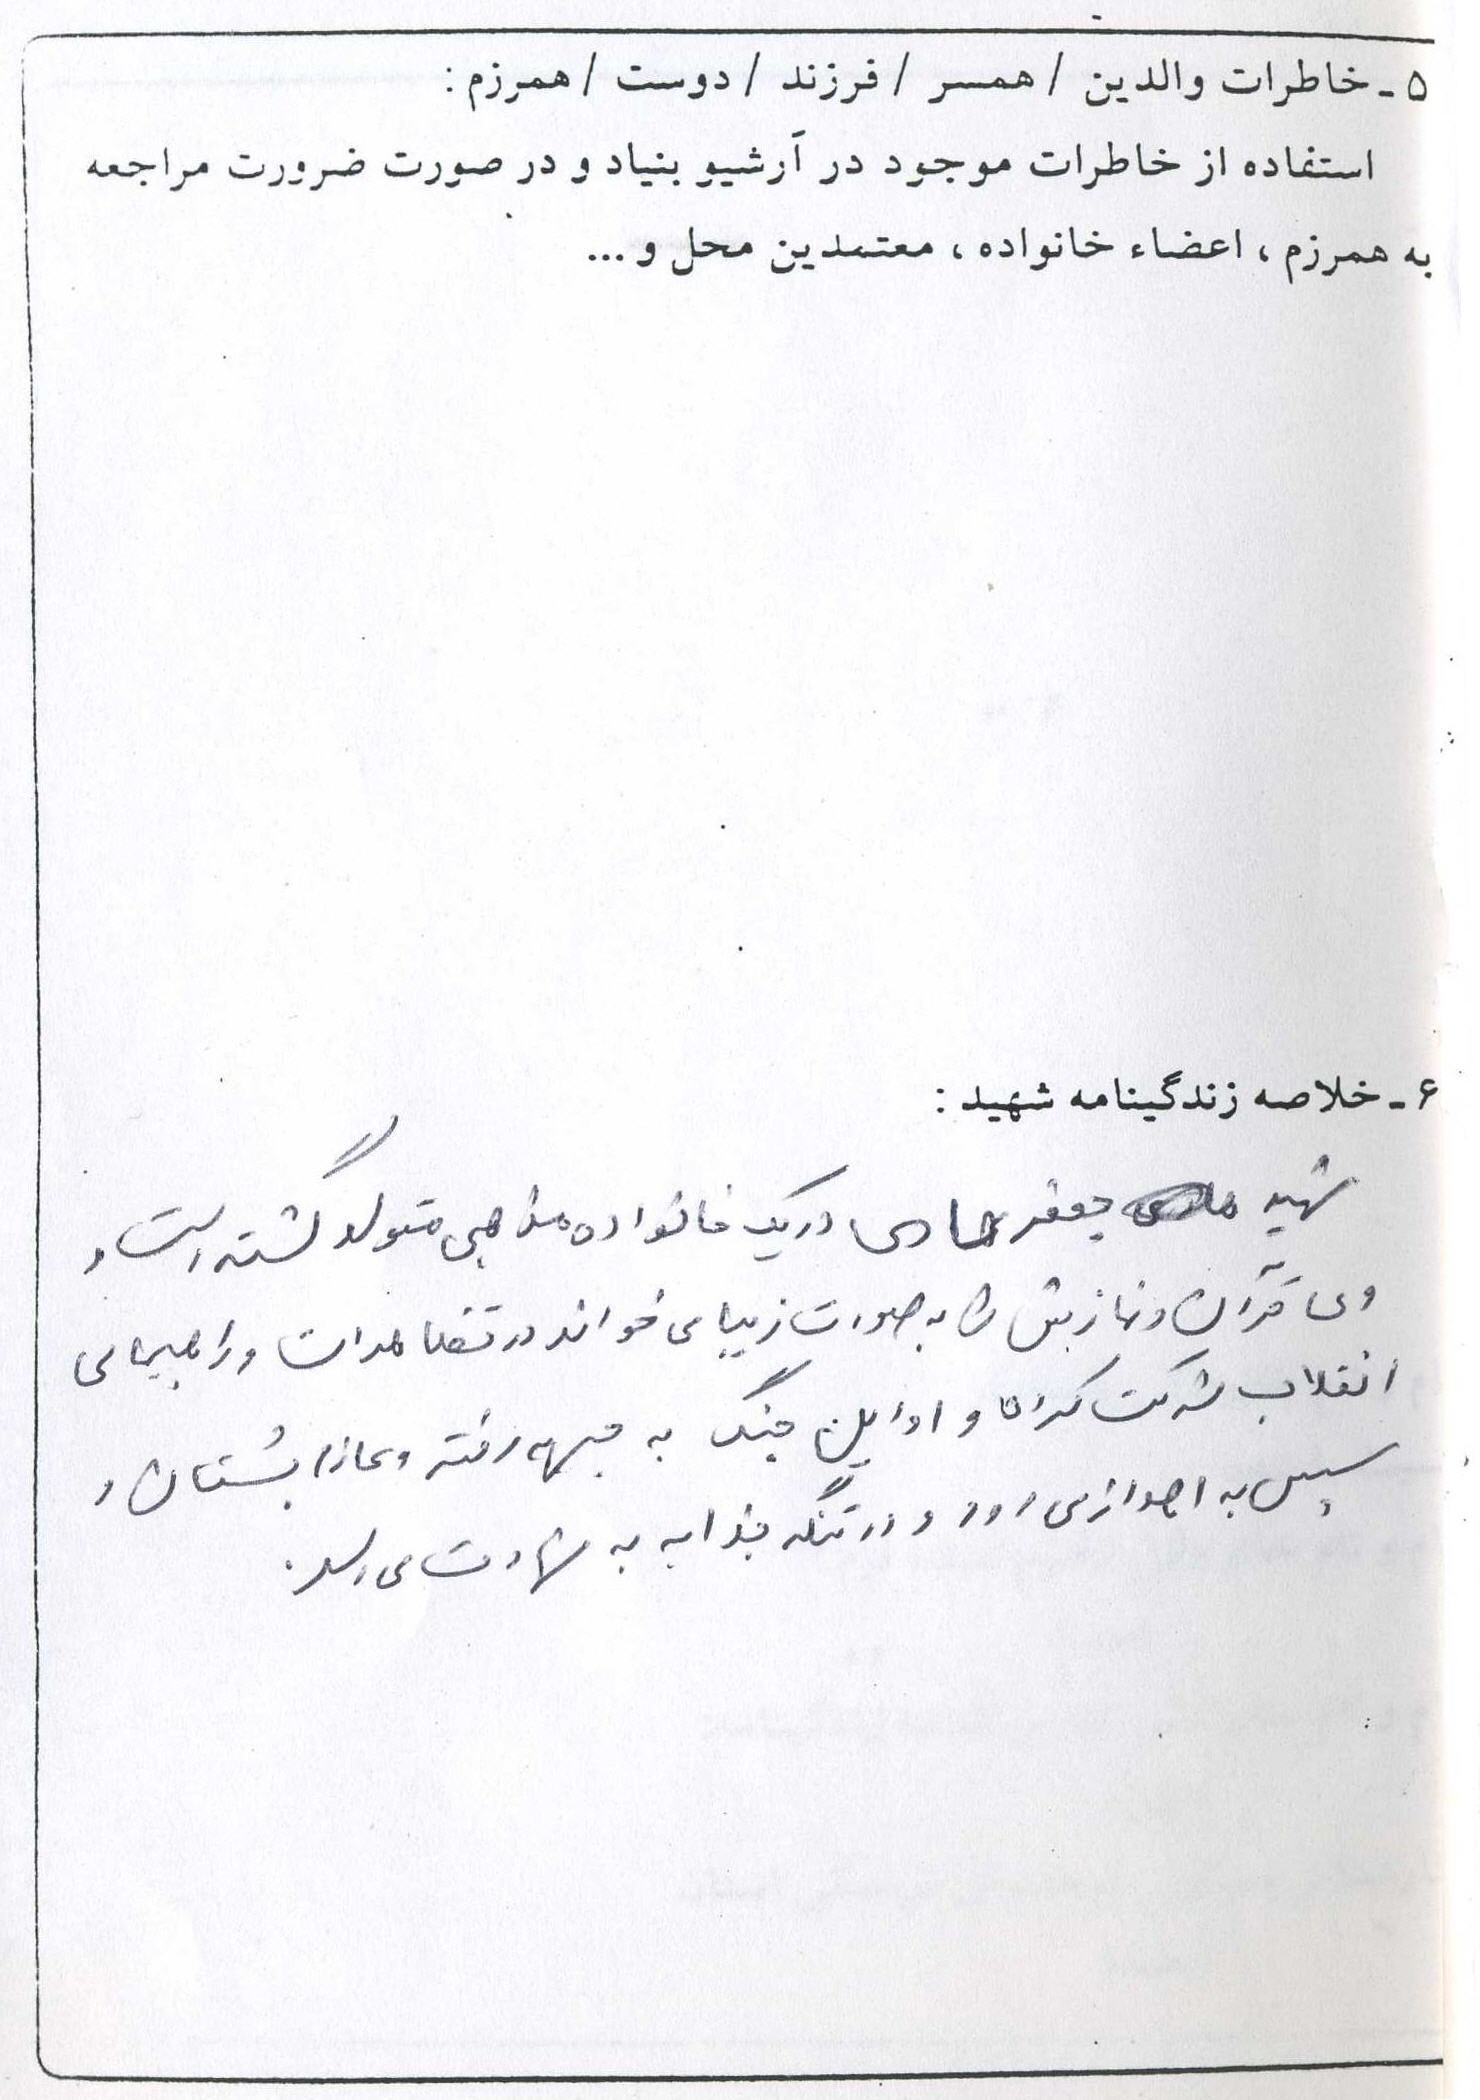 ۵ ـ خاطرات والدین / همسر / فرزند / دوست / همرزم :
استفاده از خاطرات موجود در آرشیو بنیاد و در صورت ضرورت مراجعه
به همرزم ، اعضاء خانواده ، معتمدین محل و ...
۶ ـ خلاصه زندگینامه شهید :
شهید جعفر حمادی در یک خانواده مذهبی متولد گشته است و
وی قرآن و نمازش را به صورت زیبا می خواند در تظاهرات و راهپیمایی
انقلاب شرکت کرده و اوایل جنگ به جبهه رفته و بستان و
سپس به اهواز می رود و در تنگه چذابه به شهادت می رسد .